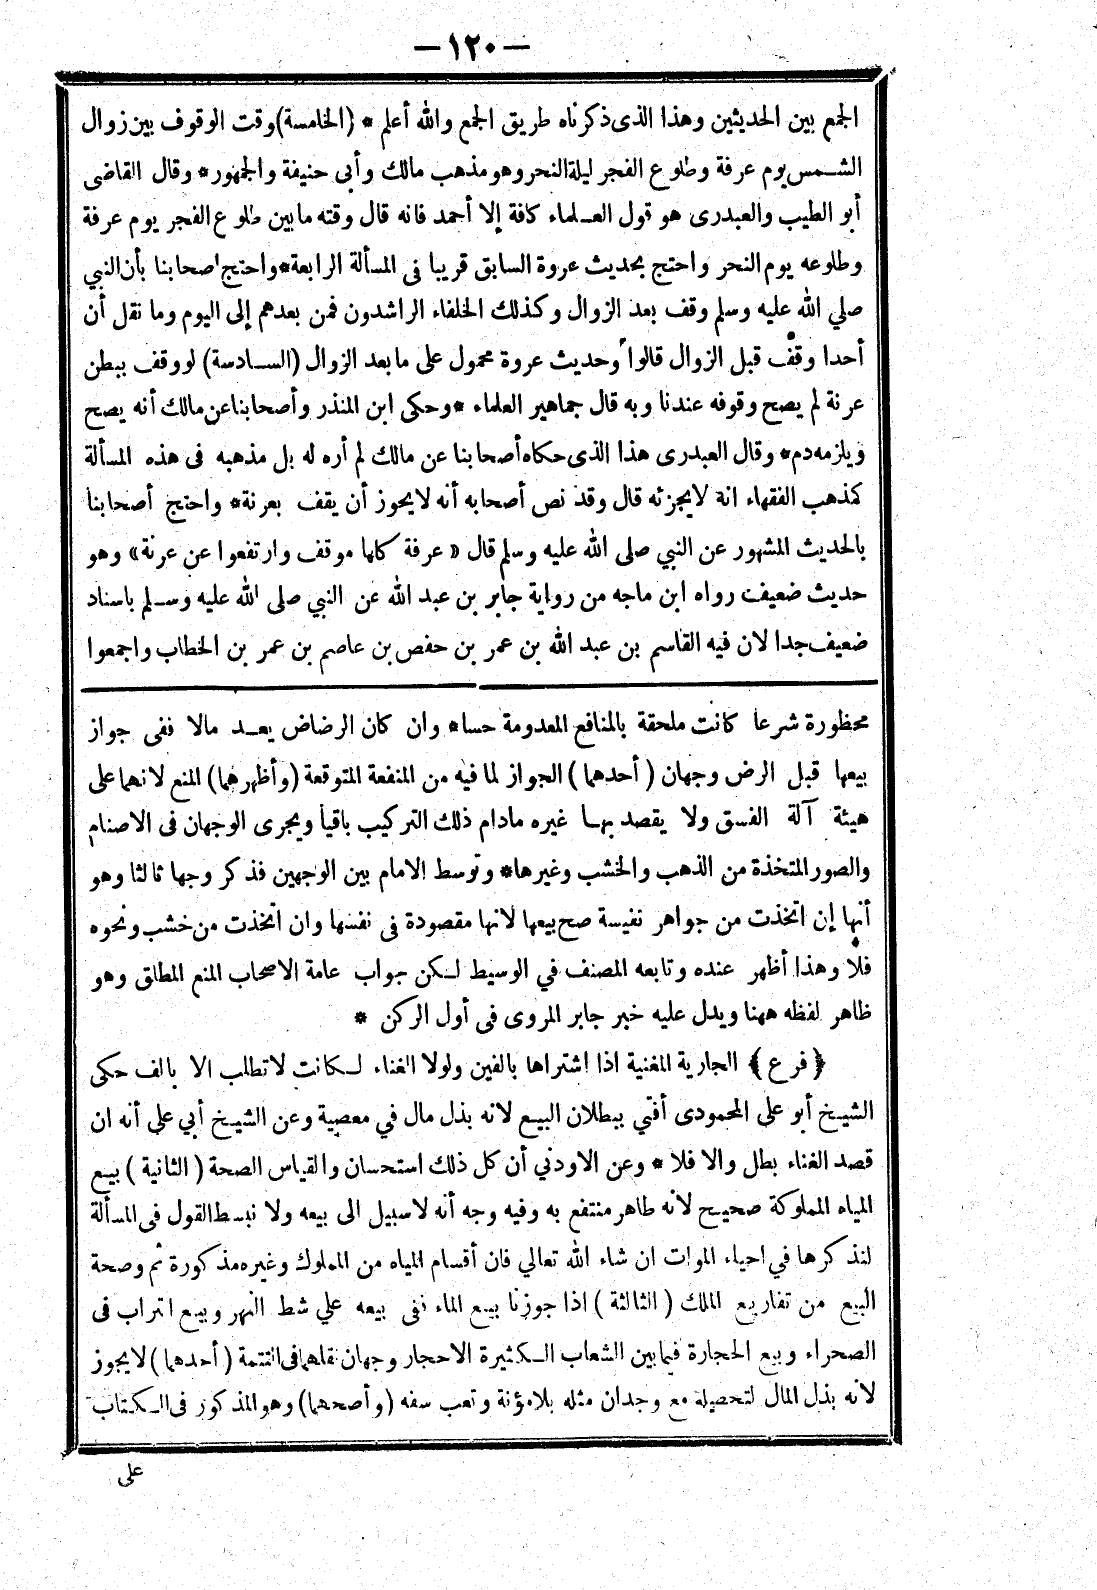 — ١٢٠ —
الجمع بين الحديثين وهذا الذى ذكرناه طريق الجمع والله أعلم * (الخامسة) وقت الوقوف بين زوال
الشمس يوم عرفة وطلوع الفجر ليلة النحر وهو مذهب مالك وأبى حنيفة والجمهور * وقال القاضى
أبو الطيب والعبدرى هو قول العلماء كافة إلا أحمد فانه قال وقته ما بين طلوع الفجر يوم عرفة
وطلوعه يوم النحر واحتج بحديث عروة السابق قريبا فى المسألة الرابعة * واحتج اصحابنا بأن النبي
صلي الله عليه وسلم وقف بعد الزوال وكذلك الخلفاء الراشدون فمن بعدهم إلى اليوم وما نقل أن
أحدا وقف قبل الزوال قالوا وحديث عروة محمول على ما بعد الزوال (السادسة) لو وقف ببطن
عرنة لم يصح وقوفه عندنا وبه قال جماهير العلماء * وحكى ابن المنذر وأصحابنا عن مالك أنه يصح
ويلزمه دم * وقال العبدرى هذا الذى حكاه أصحابنا عن مالك لم أره له بل مذهبه فى هذه المسألة
كمذهب الفقهاء انه لا يجزئه قال وقد نص أصحابه أنه لا يجوز أن يقف بعرنة * واحتج أصحابنا
بالحديث المشهور عن النبي صلى الله عليه وسلم قال « عرفة كلها موقف وارتفعوا عن عرنة » وهو
حديث ضعيف رواه ابن ماجه من رواية جابر بن عبد الله عن النبي صلى الله عليه وسلم باسناد
ضعيف جدا لان فيه القاسم بن عبد الله بن عمر بن حفص بن عاصم بن عمر بن الخطاب واجمعوا
محظورة شرعا كانت ملحقة بالمنافع المعدومة حسا * وان كان الرضاض يعد مالا ففى جواز
بيعها قبل الرض وجهان (أحدهما) الجواز لما فيه من المنفعة المتوقعة (وأظهرهما) المنع لانهما على
هيئة آلة الفسق ولا يقصد بها غيره مادام ذلك التركيب باقيا ويجرى الوجهان فى الاصنام
والصور المتخذة من الذهب والخشب وغيرها * وتوسط الامام بين الوجهين فذكر وجها ثالثا وهو
أنها إن اتخذت من جواهر نفيسة صح بيعها لانها مقصودة فى نفسها وان اتخذت من خشب ونحوه
فلا وهذا أظهر عنده وتابعه المصنف في الوسيط لكن جواب عامة الاصحاب المنع المطلق وهو
ظاهر لفظه ههنا ويدل عليه خبر جابر المروى فى أول الركن *
﴿ فرع ﴾ الجارية المغنية اذا اشتراها بالفين ولولا الغناء لكانت لا تطلب الا بالف حكى
الشيخ أبو على المحمودى أفتي ببطلان البيع لانه بذل مال في معصية وعن الشيخ أبي على أنه ان
قصد الغناء بطل والا فلا * وعن الاودني أن كل ذلك استحسان والقياس الصحة (الثانية) بيع
المياه المملوكة صحيح لانه طاهر منتفع به وفيه وجه أنه لا سبيل الى بيعه ولا نبسط القول فى المسألة
لنذكرها في احياء الموات ان شاء الله تعالي فان أقسام المياه من المملوك وغيره مذكورة ثم وصحة
البيع من تفاريع الملك (الثالثة) اذا جوزنا بيع الماء ففى بيعه علي شط النهر وبيع التراب فى
الصحراء وبيع الحجارة فيما بين الشعاب الكثيرة الاحجار وجهان نقلهما فى التتمة (أحدهما) لا يجوز
لانه بذل المال لتحصيله مع وجدان مثله بلا مؤنة وتعب سفه (وأصحهما) وهو المذكور فى الكتاب
على